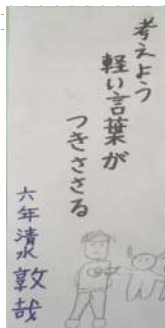 考えよう
軽い言葉が
つきささる
六年清水敦哉